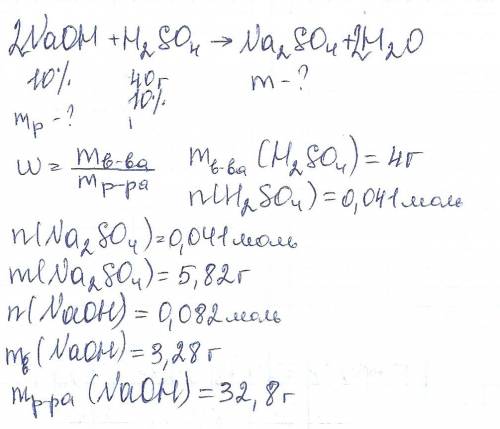 2NaOH + H₂SO₄ → Na₂SO₄ + 2H₂O
10% 40г m - ?
10%
mр - ?
ω = mв-ва / mр-ра mв-ва (H₂SO₄) = 4г
n(H₂SO₄) = 0,041 моль
n(Na₂SO₄) = 0,041 моль
m(Na₂SO₄) = 5,82 г
n(NaOH) = 0,082 моль
mв(NaOH) = 3,28 г
mр-ра (NaOH) = 32,8 г